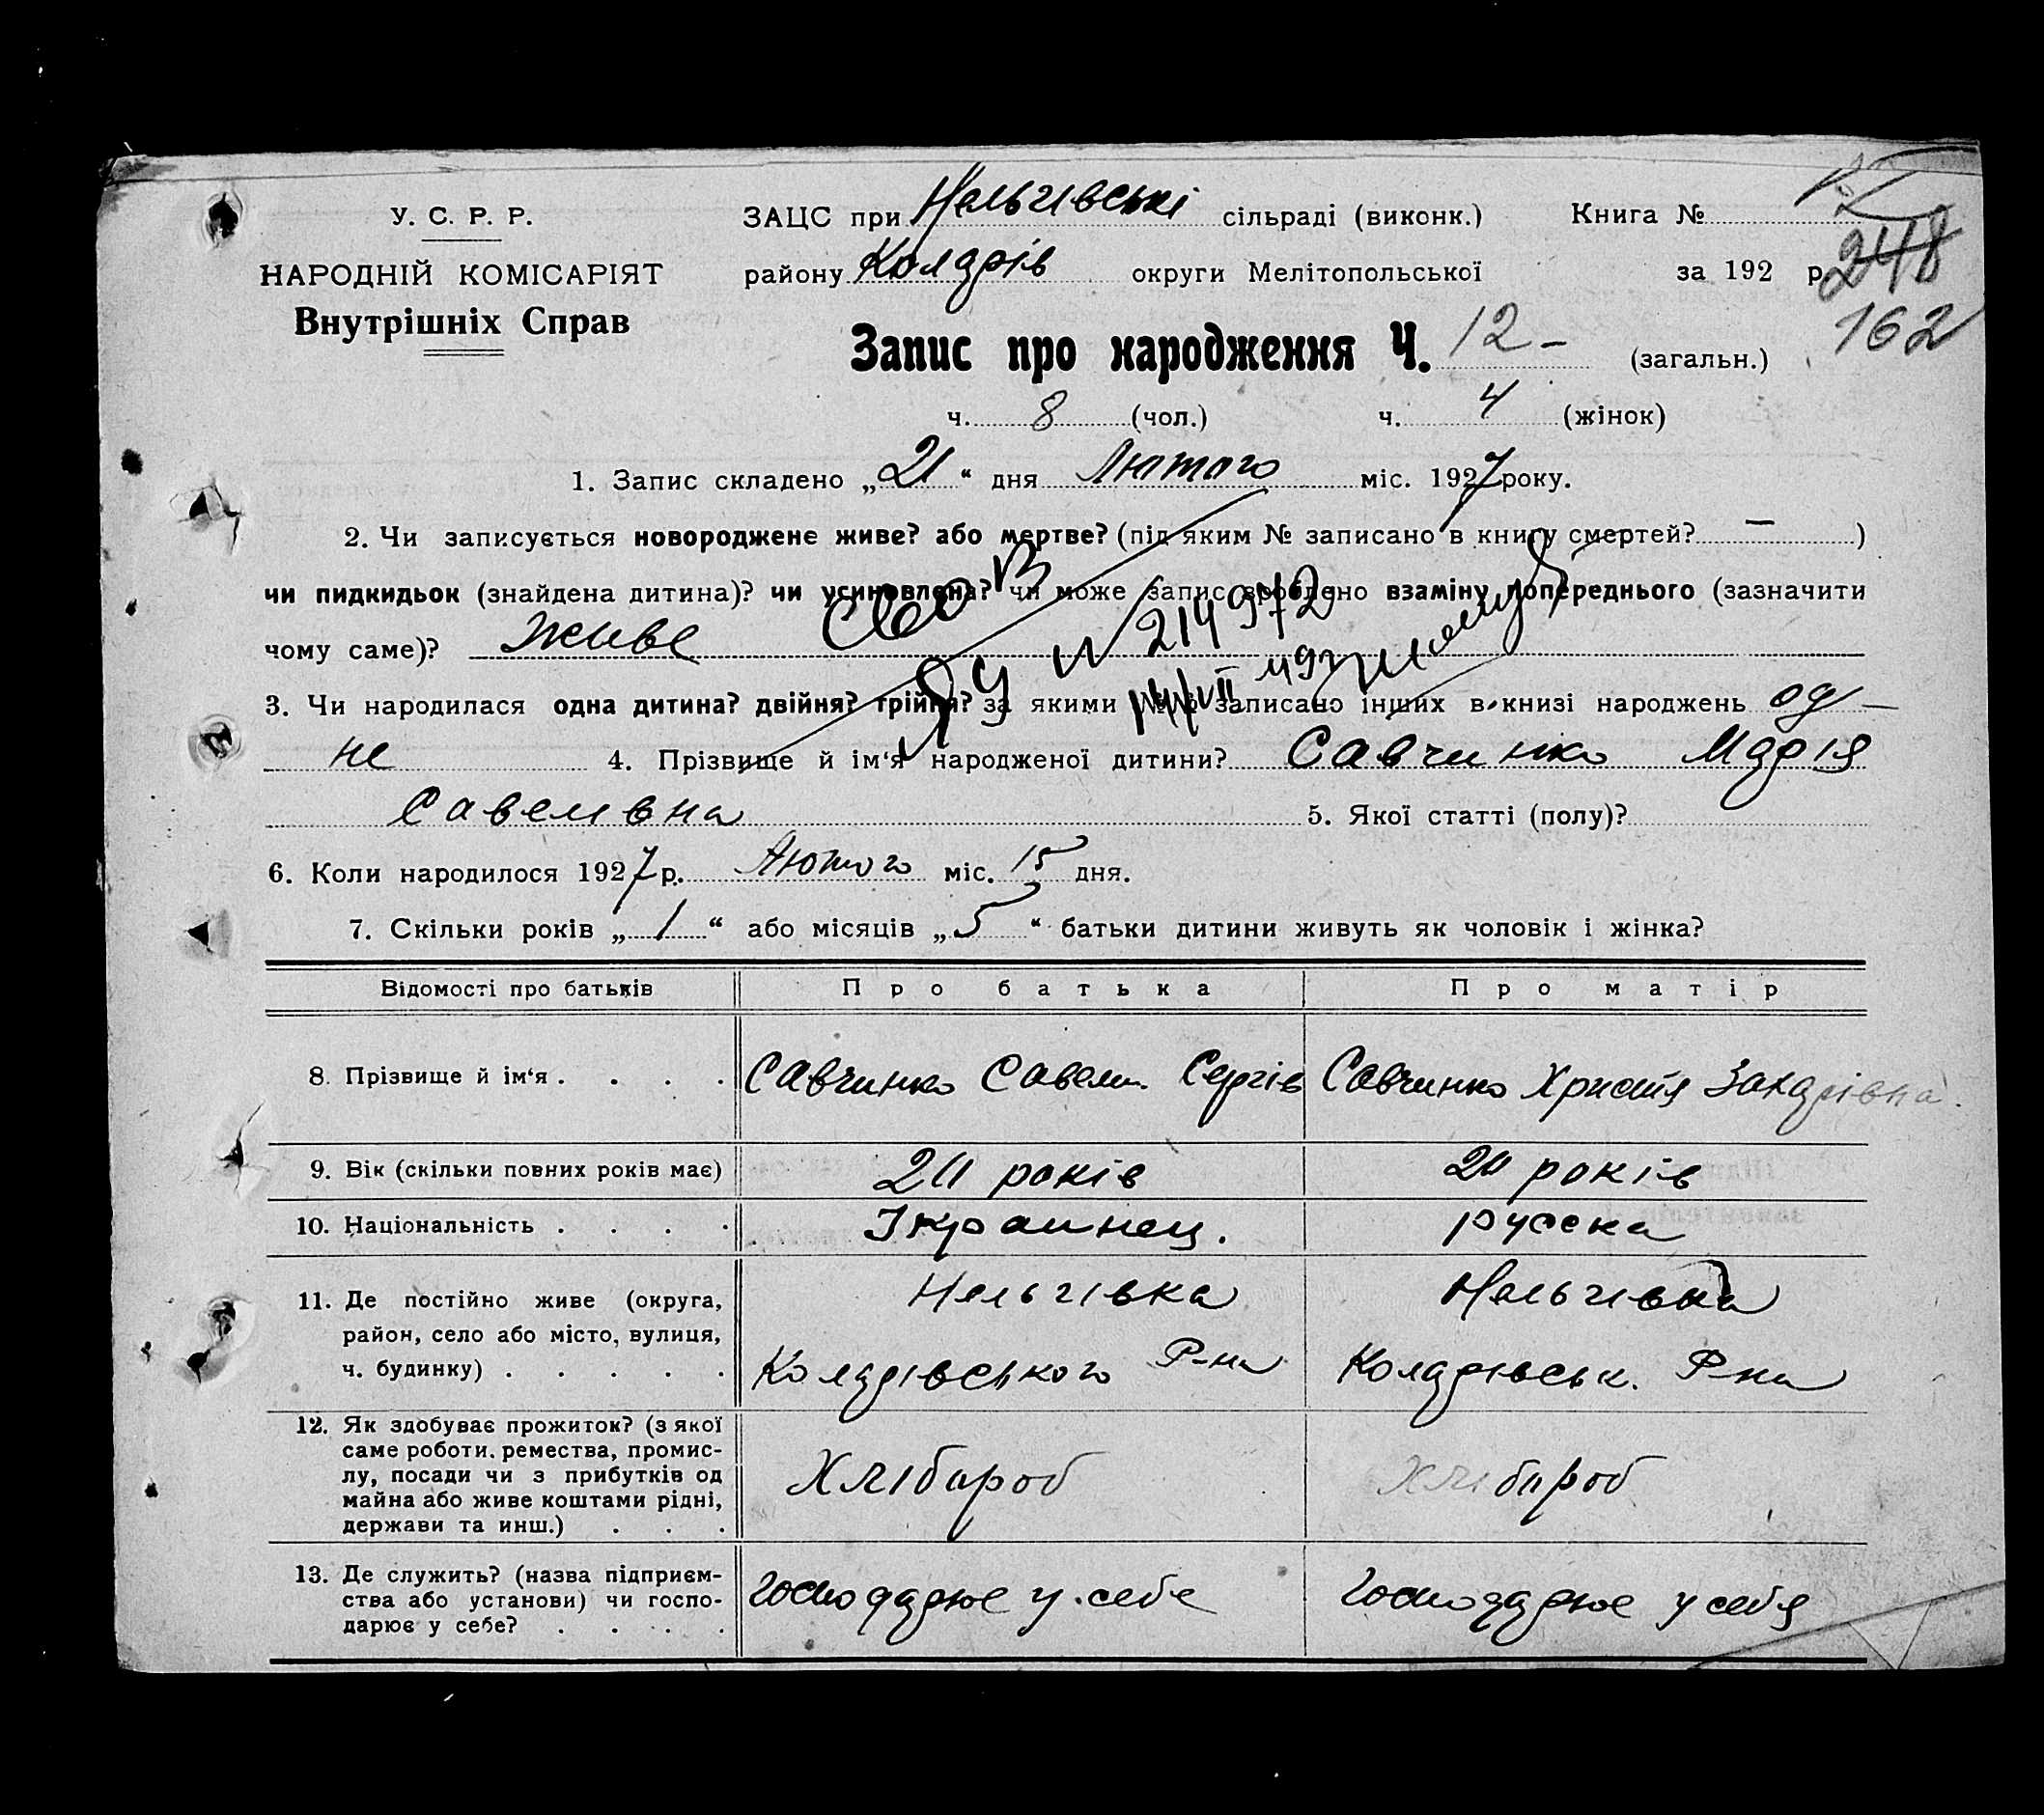 У. С. Р. Р.
НАРОДНІЙ КОМІСАРІЯТ
Внутрішніх Справ
ЗАЦС при Нельгівські сільраді (виконк.) Книга №
району Колдрів округи Мелітопольської за 192 р. 248
162
Запис про народження Ч. 12 – (загальн.)
ч. 8 (чол.) ч. 4 (жінок)
1. Запис складено „21“ дня Лютого міс. 1927 року.
2. Чи записується новороджене живе? або мертве? (під яким № записано в книгу смертей? — )
чи пидкидьок (знайдена дитина)? чи усиновлена? чи може запис зроблено взаміну попереднього (зазначити
чому саме)? живе
Сво В
ЯЧ № 214972
3. Чи народилася одна дитина? двійня? трійня? за якими №№ записано інших в книзі народжень од–
не 4. Прізвище й ім‘я народженої дитини? Савчинко Мдрія
Савеливна 5. Якої статті (полу)?
6. Коли народилося 1927 р. Лютого міс. 15 дня.
7. Скільки років „1“ або місяців „5“ батьки дитини живуть як чоловік і жінка?
Відомості про батьків Про батька Про матір
8. Прізвище й ім‘я . . . . Савчинко Савели. Сергів Савчинко Христя Захдрівна.
9. Вік (скільки повних років має) 20 років 20 років
10. Національність . . . . Украинец. русска
11. Де постійно живе (округа, Нельгівка Нельгівка
район, село або місто, вулиця,
ч. будинку) . . . . . Колдрівського Р-на Колдрівськ. Р-на
12. Як здобуває прожиток? (з якої
саме роботи, ремества, промис-
лу, посади чи з прибутків од Хлібароб Хлібароб
майна або живе коштами рідні,
держави та инш.) . . .
13. Де служить? (назва підприєм-
ства або установи) чи госпо- господдрюе у себе господдрюе у себя
дарює у себе? . . . .